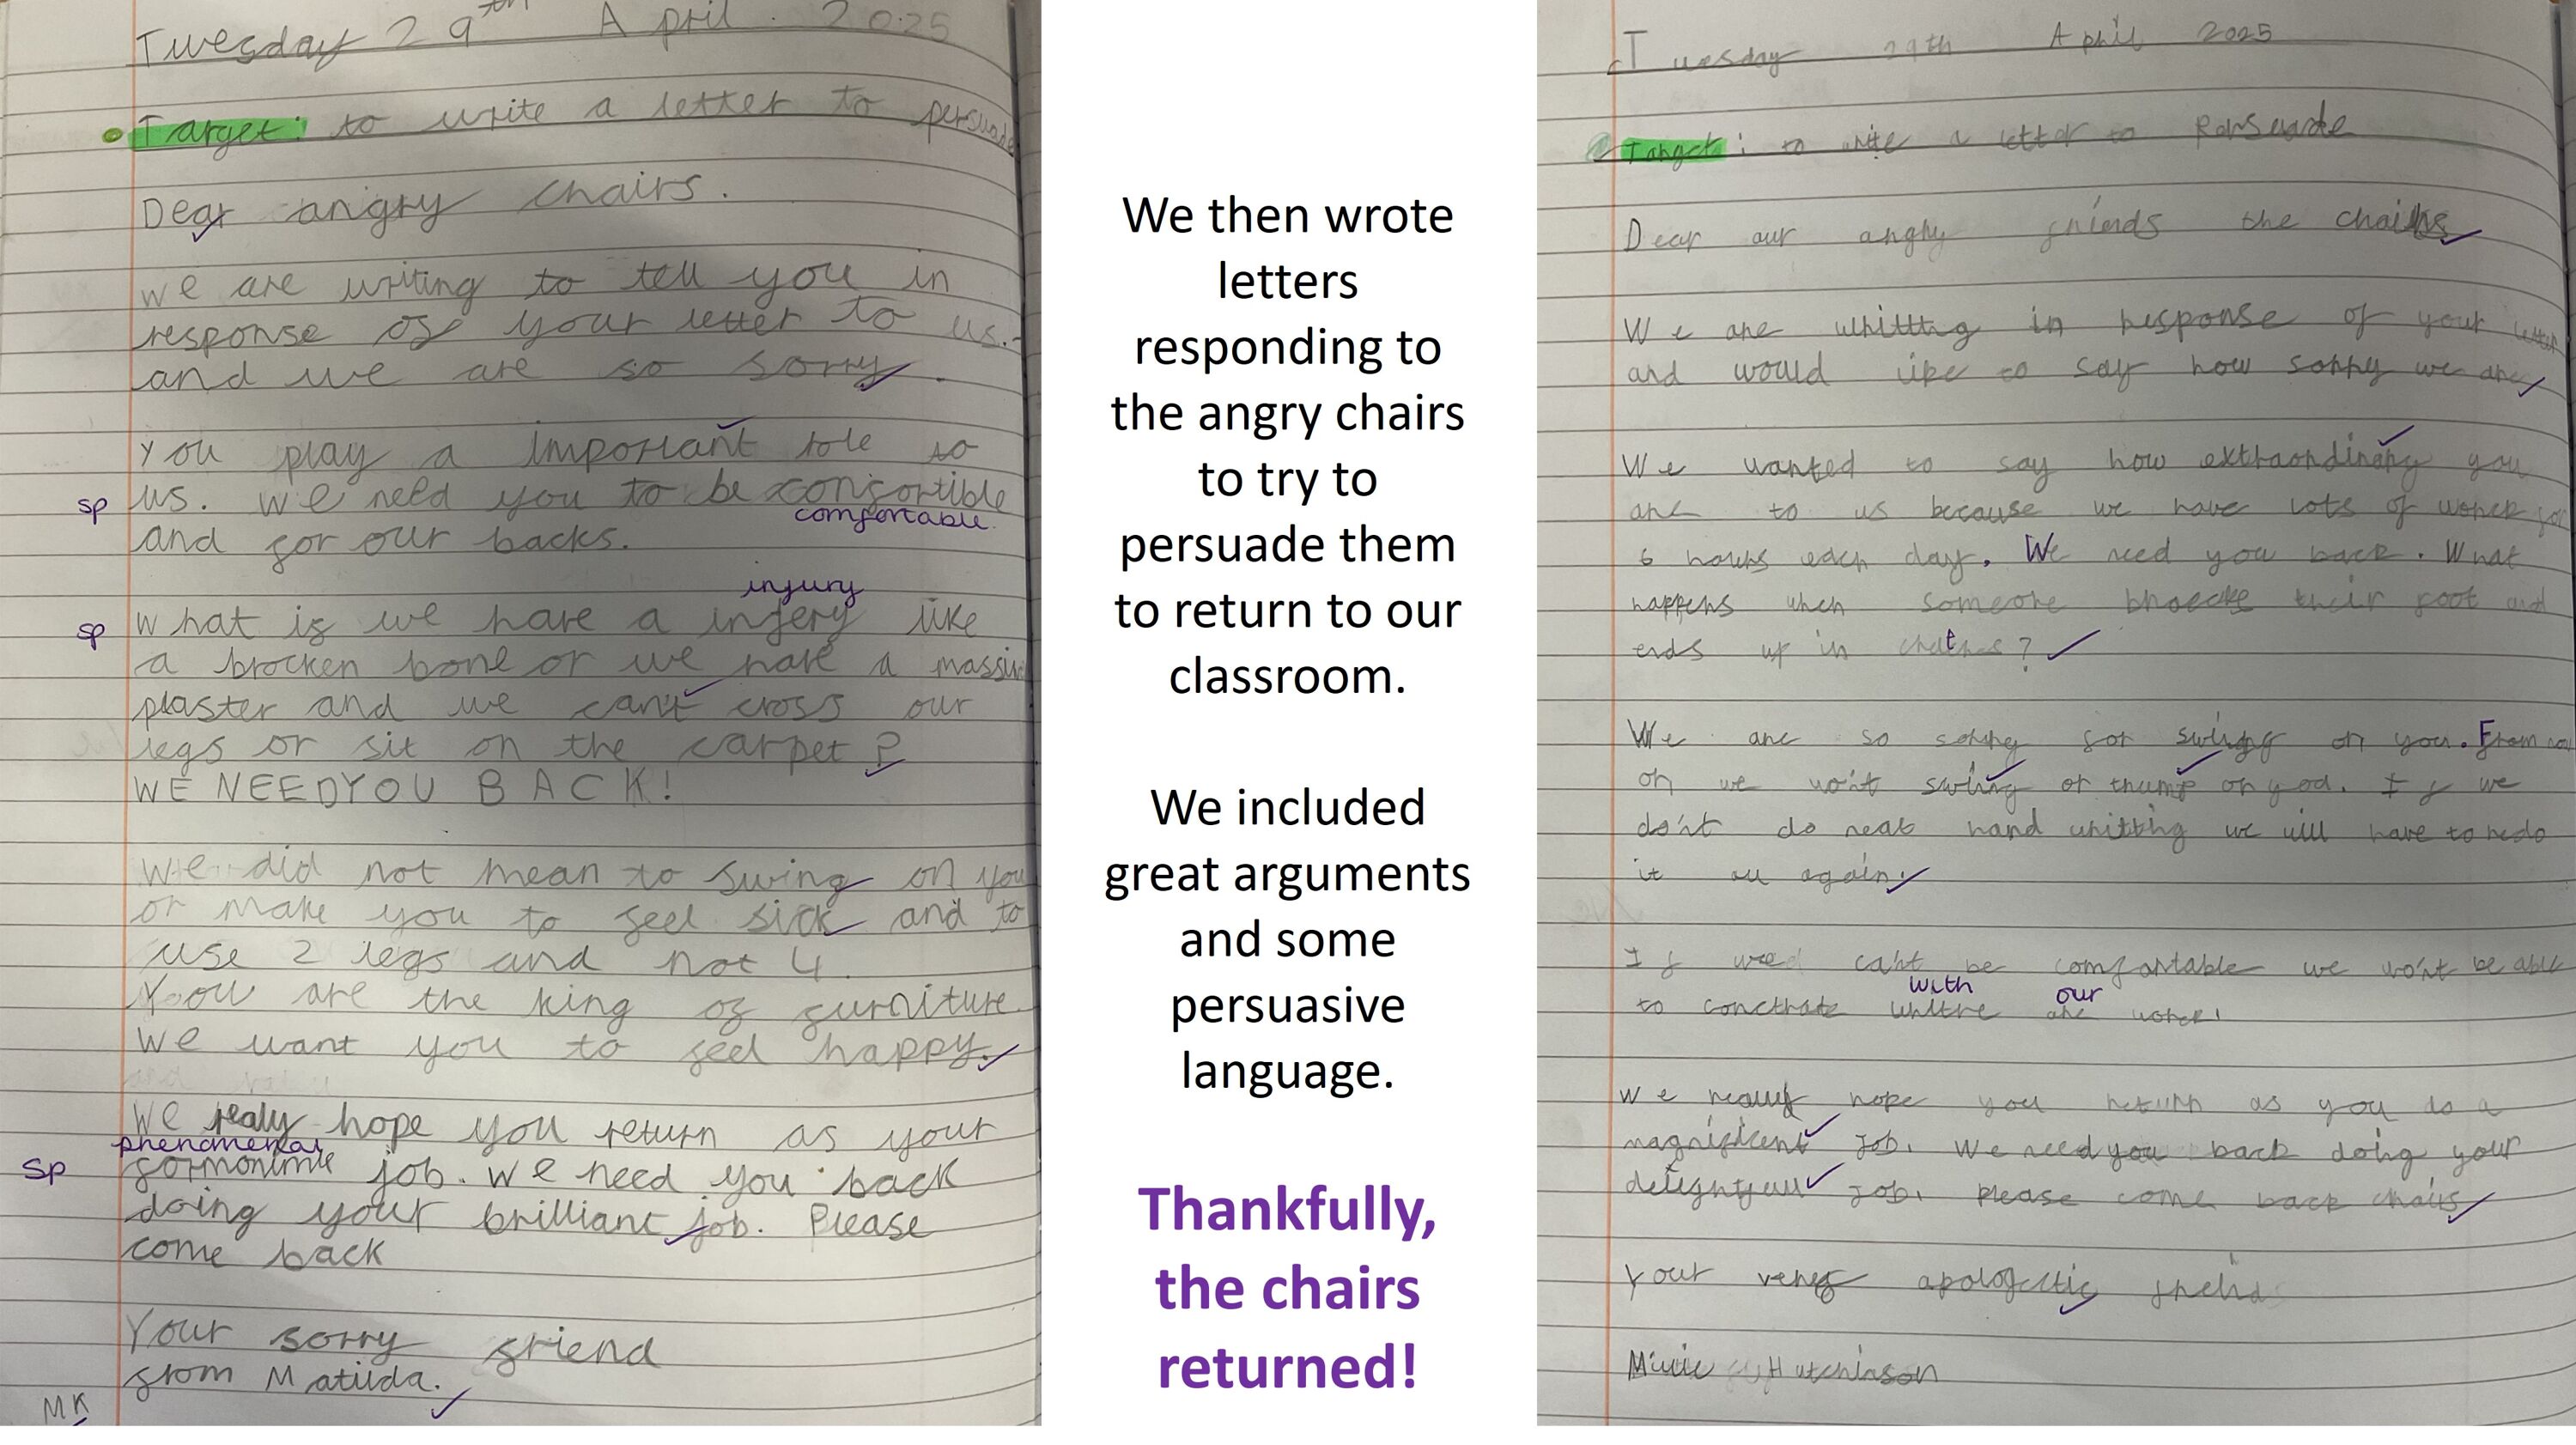 Tuesday 29th April. 2025
Target: to write a letter to persuade
Dear angry chairs.
we are writing to tell you in
response of your letter to us.
and we are so sorry.
You play a important role to
sp us. we need you to be confortible
comfortable
and for our backs.
injury
sp what if we have a injery like
a brocken bone or we have a massive
plaster and we can't cross our
legs or sit on the carpet?
WE NEED YOU BACK!
we did not mean to swing on you
or make you to feel sick and to
use 2 legs and not 4.
You are the king of furniture.
we want you to feel happy.
we realy hope you return as your
phenomenal
sp job. we need you back
doing your brilliant job. Please
come back
Your sorry friend
from Matilda.
MK
We then wrote
letters
responding to
the angry chairs
to try to
persuade them
to return to our
classroom.
We included
great arguments
and some
persuasive
language.
Thankfully,
the chairs
returned!
Tuesday 29th April 2025
Target: to write a letter to Persuade
Dear our angry friends the chairs
We are whitting in response of your letter
and would like to say how sorry we are
We wanted to say how extraordinary you
are to us because we have lots of worck for
6 hours each day. We need you back. What
happens when someone their foot and
ends up in ?
We are so sorry for swinging on you. From now
on we wo'nt swing or thump on you. If we
do'nt do neat hand whitting we will have to redo
it all again.
If we ca'nt be comfortable we wo'nt be able
with our
to conctrate are worck!
We really hope you return as you do a
magnificent job. We need you back doing your
delightfull job. Please come back chairs
Your very apologetic
Hutchinson